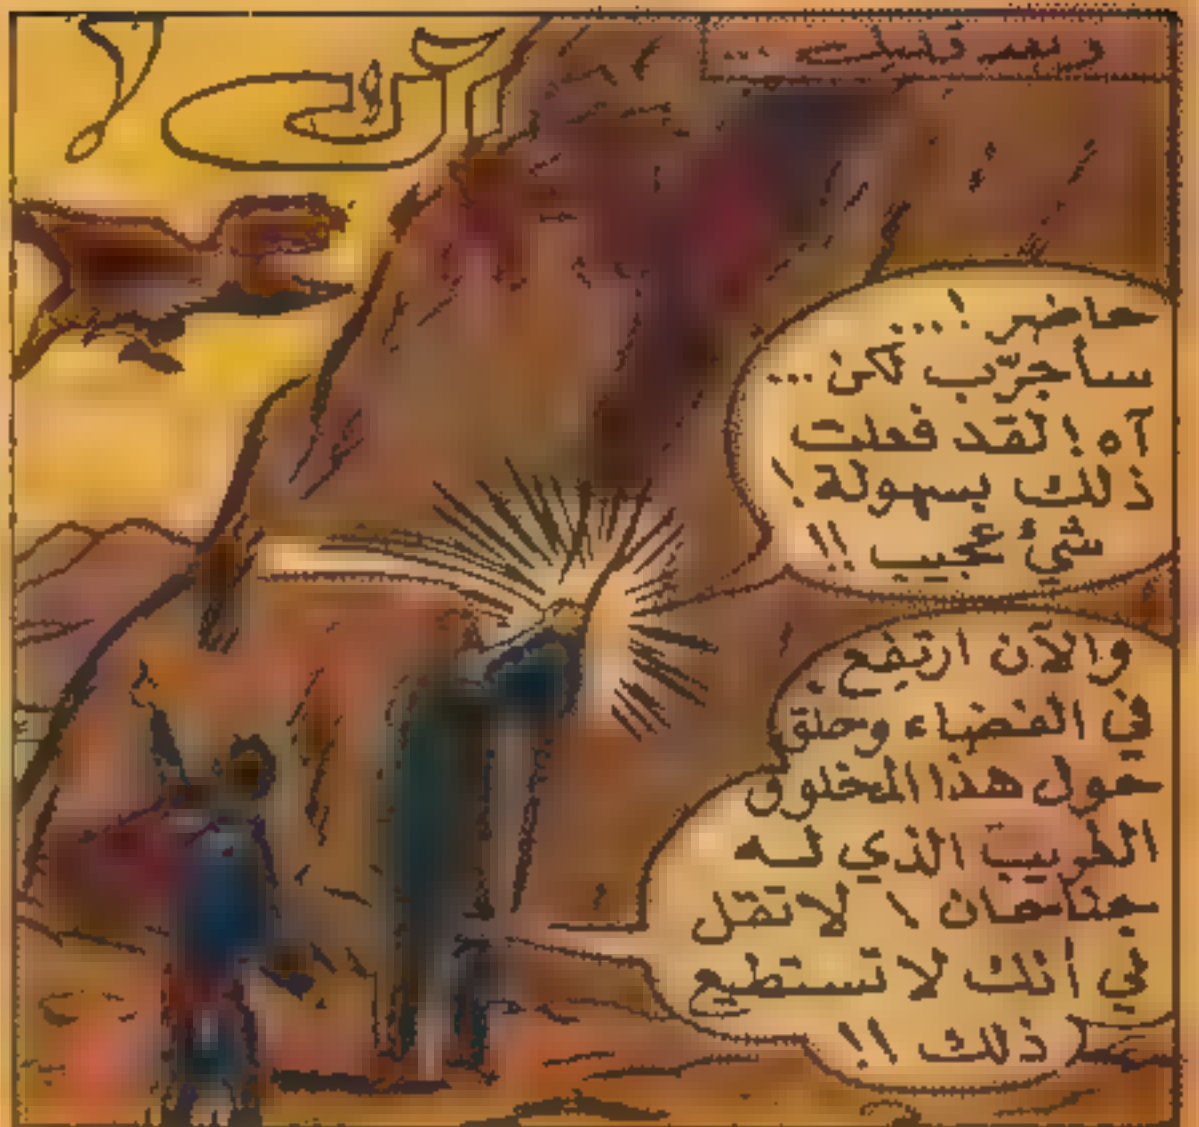 وبعد قليل ...
حاضر !...
سأجرّب لكن ...
آه ! لقد فعلت
ذلك بسهولة !
شيء عجيب !!
والآن ارتفع
في الفضاء وحلق
حول هذا المخلوق
الغريب الذي له
جناحان ! لا تقل
لي أنك لا تستطيع
ذلك !!